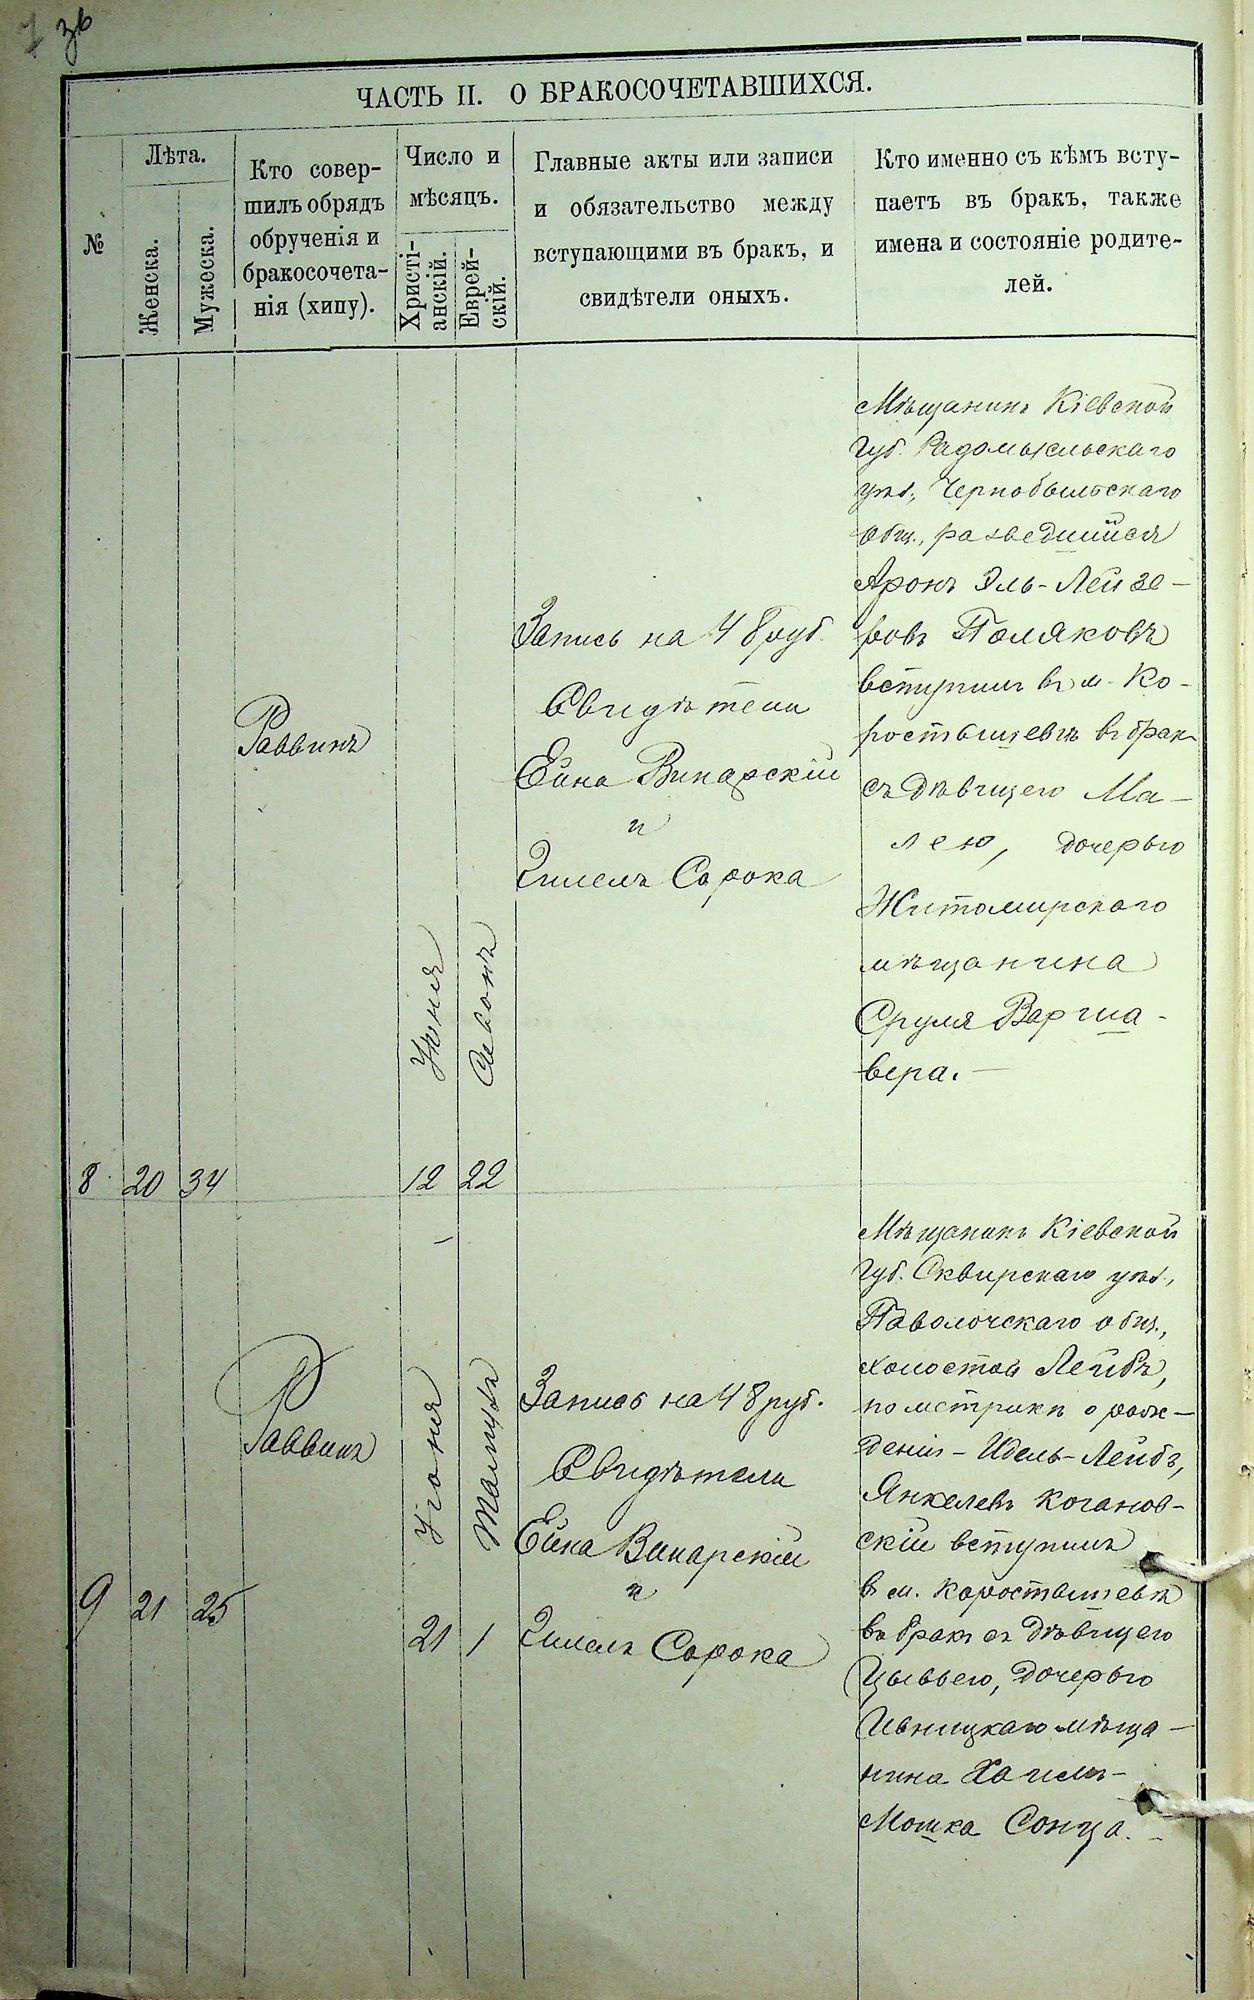 36
ЧАСТЬ II. О БРАКОСОЧЕТАВШИХСЯ.
№
Лѣта.
Женска.
Мужеска.
Кто совер-
шилъ обрядъ
обрученія и
бракосочета-
нія (хипу).
Число и
мѣсяцъ.
Христі-
анскій.
Еврей-
скій.
Главные акты или записи
и обязательство между
вступающими въ бракъ, и
свидѣтели оныхъ.
Кто именно съ кѣмъ всту-
паетъ въ бракъ, также
имена и состояніе родите-
лей.
8
20
34
Раввинъ
Іюня
12
Сивонъ
22
Запись на 48 руб.
Свидѣтели
Ейна Винарскій
и
Хилелъ Сорока
Мѣщанинъ Кіевской
губ. Радомысльскаго
уѣз., Чернобыльскаго
общ., разведшійся
Аронъ Эль-Лейзе-
ровъ Поляковъ
вступилъ въ м. Ко-
ростышевѣ въ бракъ
съ дѣвицею Ма-
лею, дочерью
Житомирскаго
мѣщанина
Сруля Варша-
вера.
9
21
25
Раввинъ
Іюня
21
Тамуза
1
Запись на 48 руб.
Свидѣтели
Ейна Винарскій
и
Хилелъ Сорока
Мѣщанинъ Кіевской
губ. Сквирскаго уѣз.,
Паволочскаго общ.,
холостой Лейбъ,
по метрикѣ о рож-
деніи - Идель-Лейбъ,
Янкелевъ Коганов-
скій вступилъ
въ м. Коростышевѣ
въ бракъ съ дѣвицею
Цывьею, дочерью
Ивницкаго мѣща-
нина Хаимъ-
Мошка Сонца.